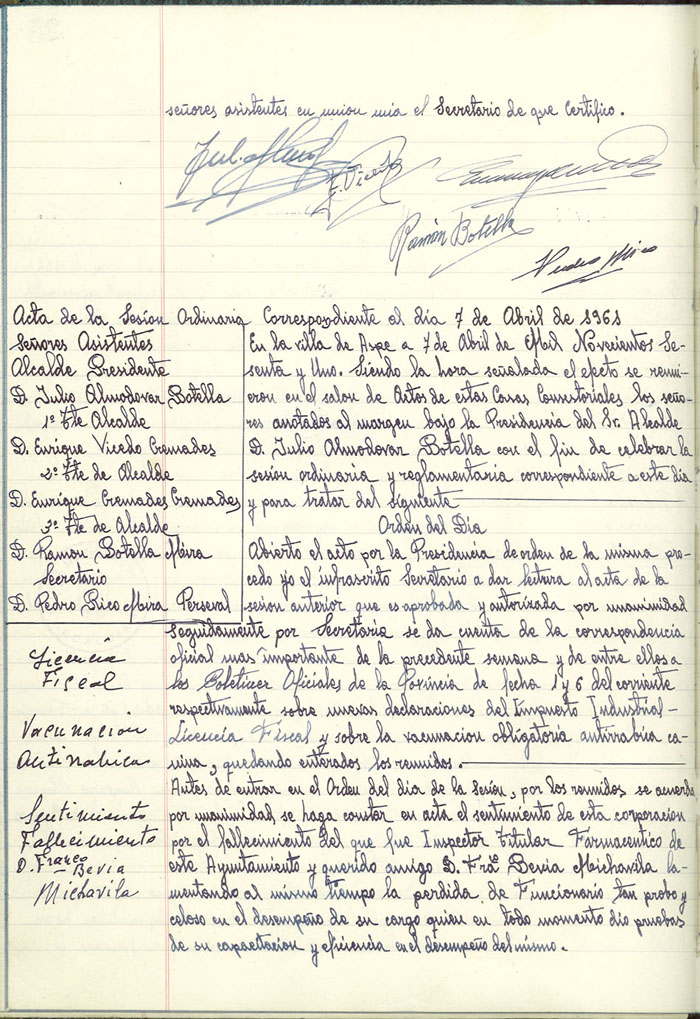 señores asistentes en union mia el Secretario de que Certifico.
F. Vicedo
Ramón Botella
Pedro Mira
Acta de la Sesión Ordinaria Correspondiente al día 7 de Abril de 1961
Señores Asistentes
Alcalde Presidente
D. Julio Almodovar Botella
1º Tte Alcalde
D. Enrique Vicedo Cremades
2º Tte de Alcalde
D. Enrique Cremades Cremades
3º Tte de Alcalde
D. Ramon Botella Mira
Secretario
D. Pedro Rico Mira Perseval
En la villa de Aspe a 7 de Abril de Mil Novecientos Se-
senta y Uno. Siendo la hora señalada el efecto se reuni-
eron en el salon de Actos de estas Casas Consistoriales los seño-
res anotados al margen bajo la Presidencia del Sr. Alcalde
D. Julio Almodovar Botella con el fin de celebrar la
sesión ordinaria y reglamentaria correspondiente a este dia
y para tratar del siguiente
Orden del Dia
Abierto el acto por la Presidencia de orden de la misma pro-
cedo yo el infrascrito Secretario a dar lectura al acta de la
sesión anterior que es aprobada y autorizada por unanimidad
Seguidamente por Secretaría se da cuenta de la correspondencia
oficial mas importante de la precedente semana y de entre ellos a
los Boletines Oficiales de la Provincia de fecha 1 y 6 del corriente
respectivamente sobre nuevas declaraciones del Impuesto Industrial-
Licencia Fiscal y sobre la vacunacion obligatoria antirrabica ca-
nina, quedando enterados los reunidos.
Licencia
Fiscal
Vacunacion
Antirrabica
Antes de entrar en el Orden del dia de la Sesión, por los reunidos se acuerda
por unanimidad se haga constar en acta el sentimiento de esta corporacion
por el fallecimiento del que fue Inspector titular Farmaceutico de
este Ayuntamiento y querido amigo D. Frco Bevia Michavila la-
mentando al mismo tiempo la perdida de Funcionario tan probo y
celoso en el desempeño de su cargo quien en todo momento dio pruebas
de su capacitacion y eficiencia en el desempeño del mismo.
Sentimiento
Fallecimiento
D. Franco
Bevia
Michavila